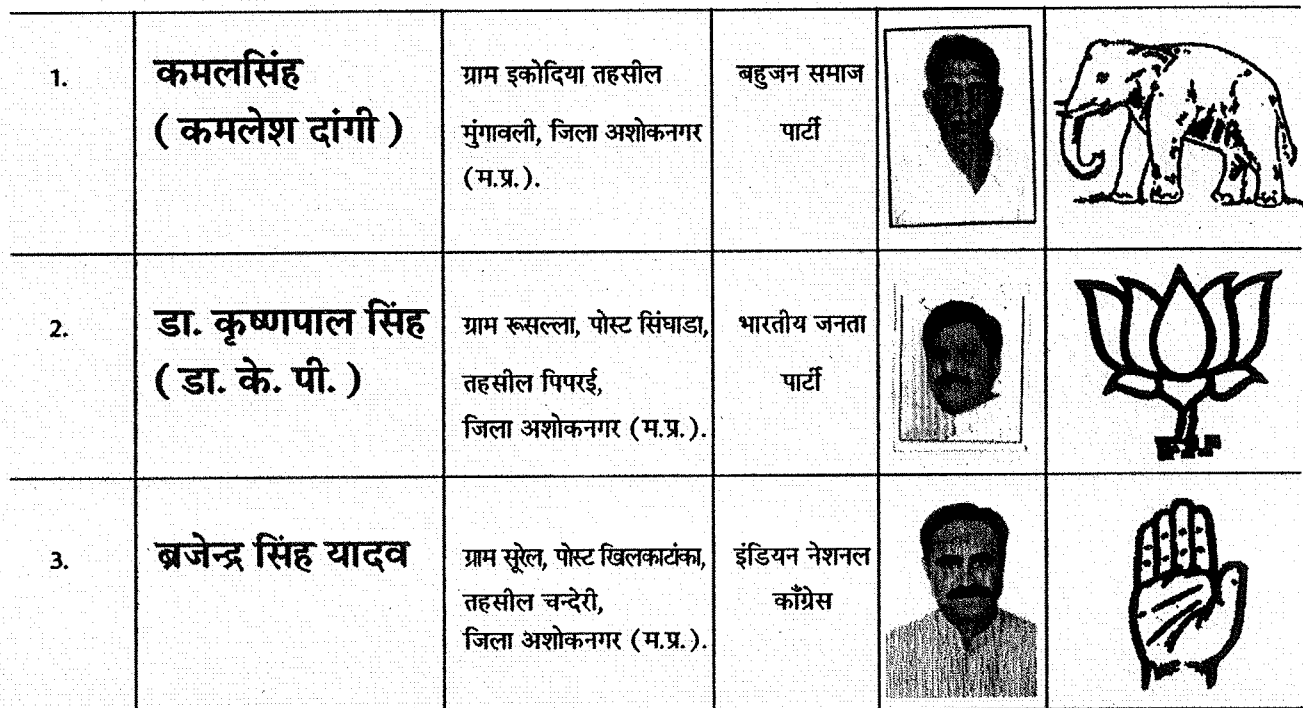 1.
कमलसिंह
( कमलेश दांगी )
ग्राम इकोदिया तहसील
मुंगावली, जिला अशोकनगर
(म.प्र.).
बहुजन समाज
पार्टी
2.
डा. कृष्णपाल सिंह
( डा. के. पी. )
ग्राम रूसल्ला, पोस्ट सिंघाडा,
तहसील पिपरई,
जिला अशोकनगर (म.प्र.).
भारतीय जनता
पार्टी
3.
ब्रजेन्द्र सिंह यादव
ग्राम सूरेल, पोस्ट खिलकाटांका,
तहसील चन्देरी,
जिला अशोकनगर (म.प्र.).
इंडियन नेशनल
काँग्रेस